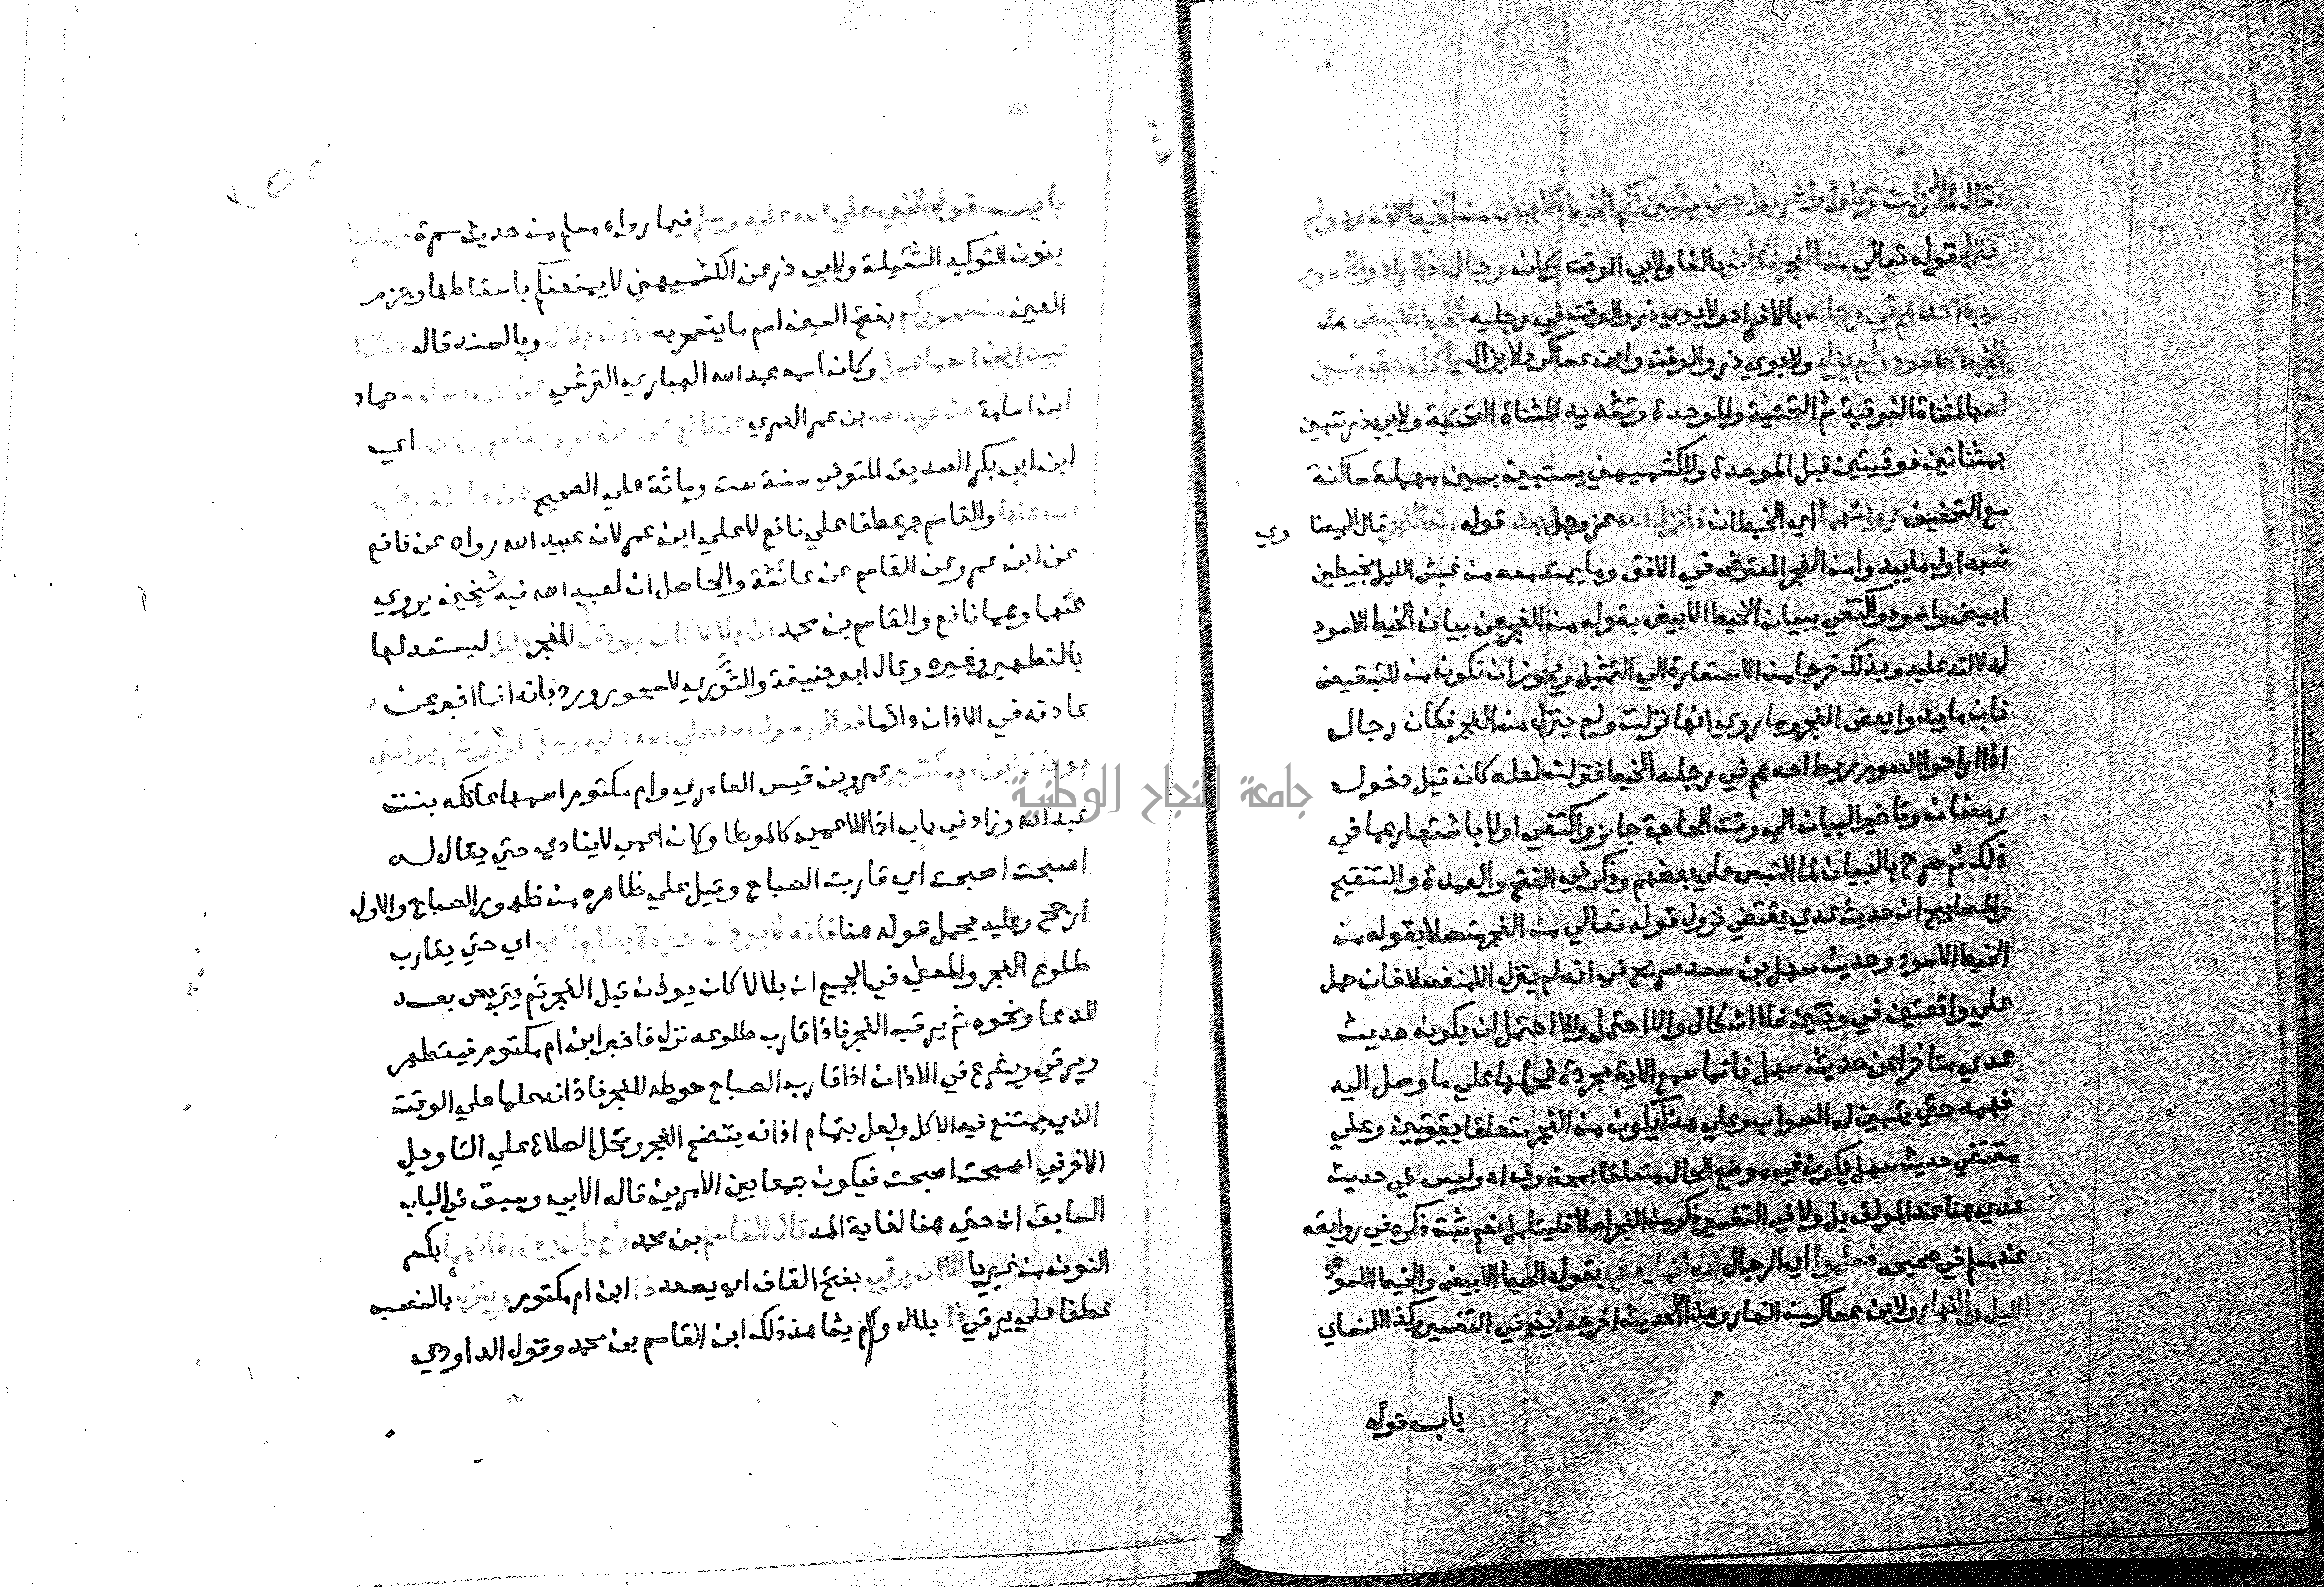 قال لما نزلت وكلوا واشربوا حتي يتبين لكم الخيط الابيض من الخيط الاسود ولم
ينزل قوله تعالي من الفجر فكان بالفا ولابي الوقت وكان رجال اذا ارادوا الصوم
ربط احدهم في رجله بالافراد ولابوي ذر والوقت في رجليه الخيط الابيض
والخيط الاسود ولم يزل ولابوي ذر والوقت وابن عساكر ولا يزال ياكل حتي يتبين
له بالمثناة الفوقية ثم التحتية والموحدة وتشديد المثناة التحتية ولابي ذر تتبين
بمثناتين فوقيتين قبل الموحدة وللكشميهني يستبين بسين مهملة ساكنة
مع التخفيف رويتهما اي الخيطان فانزل الله عز وجل بعد قوله من الفجر قال البيضا
وي
شبه اول ما يبدو من الفجر المعترض في الافق وما يمتد معه من غبش الليل بخيطين
ابيض واسود واكتفي ببيان الخيط الابيض بقوله من الفجر عن بيان الخيط الاسود
لدلالته عليه وبذلك خرجا من الاستعارة الي التمثيل ويجوز ان تكون من للتبعيض
فان ما يبدوا بعض الفجر وما روي انها نزلت ولم ينزل من الفجر فكان رجال
اذا ارادوا الصوم ربط احدهم في رجله الخيط فنزلت لعله كان قبل دخول
رمضان وتاخير البيان الي وقت الحاجة جايز واكتفي اولا باشتهارهما في
ذلك ثم صرح بالبيان لما التبس علي بعضهم وذكر في الفتح والعمدة والتنقيح
والمصابيح ان حديث عدي يقتضي نزول قوله تعالي من الفجر متصلا بقوله من
الخيط الاسود وحديث سهل بن سعد صريح في انه لم ينزل الا منفصلا فان حمل
علي واقعتين في وقتين فلا اشكال والا احتمل والا احتمل ان يكون حديث
عدي متاخرا عن حديث سهل فانما سمع الاية مجردة فحملها علي ما وصل اليه
فهمه حتي يتبين له الصواب وعلي هذا يكون من الفجر متعلقا بيتبين وعلي
مقتضي حديث سهل يكون في موضع الحال متعلقا بمحذوف اه وليس في حديث
عدي هنا عند المولف بل ولا في التفسير ذكر من الفجر اصلا فليتامل نعم ثبت ذكره في روايته
عند مسلم في صحيحه فعلموا اي الرجال انه انما يعني بقوله الخيط الابيض والخيط الاسود
الليل والنهار ولابن عساكر من النهار وهذا الحديث اخرجه ايضا في التفسير وكذا النساي
باب قوله
باب قول النبي صلي الله عليه وسلم فيما رواه مسلم من حديث سمرة لا يمنعنكم
بنون التوكيد الثقيلة ولابي ذر عن الكشميهني لا يمنعكم باسقاطها وجزم
العين من سحوركم بفتح السين اسم ما يتسحر به اذان بلال وبالسند قال حدثنا
عبيد بن اسماعيل وكان اسمه عبد الله الهباري القرشي عن ابي اسامة حماد
ابن اسامة عن عبيد الله بن عمر العمري عن نافع عن ابن عمر والقاسم بن محمد اي
ابن ابي بكر الصديق المتوفي سنة ست وماثة علي الصحيح عن عائشة رضي
الله عنها والقاسم جر عطفا علي نافع لا علي ابن عمر لان عبيد الله رواه عن نافع
عن ابن عمر وعن القاسم عن عائشة والحاصل ان لعبيد الله فيه شيخين يروي
عنهما وهما نافع والقاسم بن محمد ان بلالا كان يوذن للفجر بليل ليستعد لها
بالتطهير وغيره وقال ابو حنيفة والثوري لا سحور ورد بانه انما اخبر عن
عادته في الاذان دائما فقال رسول الله صلي الله عليه وسلم كلوا واشربوا حتي
يوذن ابن ام مكتوم عمرو بن قيس العامري وام مكتوم اسمها عاتكه بنت
عبد الله وزاد في باب اذان الاعمي كالموطا وكان اعمي لا ينادي حتي يقال له
اصبحت اصبحت اي قاربت الصباح وقيل علي ظاهره من ظهور الصباح والاول
ارجح وعليه يحمل قوله هنا فانه لا يوذن حتي يطلع الفجر اي حتي يقارب
طلوع الفجر والمعني في الجميع ان بلالا كان يوذن قبل الفجر ثم يتربص بعد
للدعا ونحوه ثم يرقب الفجر فاذا قارب طلوعه نزل فاخبر ابن ام مكتوم فيتطهر
ويرقي ويشرع في الاذان اذا قارب الصباح حوطه للفجر فاذانه علما علي الوقت
الذي يمتنع فيه الاكل ولعل بتمام اذانه يتضح الفجر وتحل الصلاة علي التاويل
الاخر في اصبحت اصبحت فيكون جمعا بين الامرين قاله الابي وسبق في الباب
السابق ان حتي هنا لغاية المد قال القاسم بن محمد ولم يكن بين اذانهما بكسر
النون من غير يا الا ان يرقي بفتح القاف اي يصعد ذا ابن ام مكتوم وينزل بالنصب
عطفا علي يرقي ذا بلال ولم يشاهد ذلك ابن القاسم بن محمد وقول الداودي
جامعة النجاح الوطنية